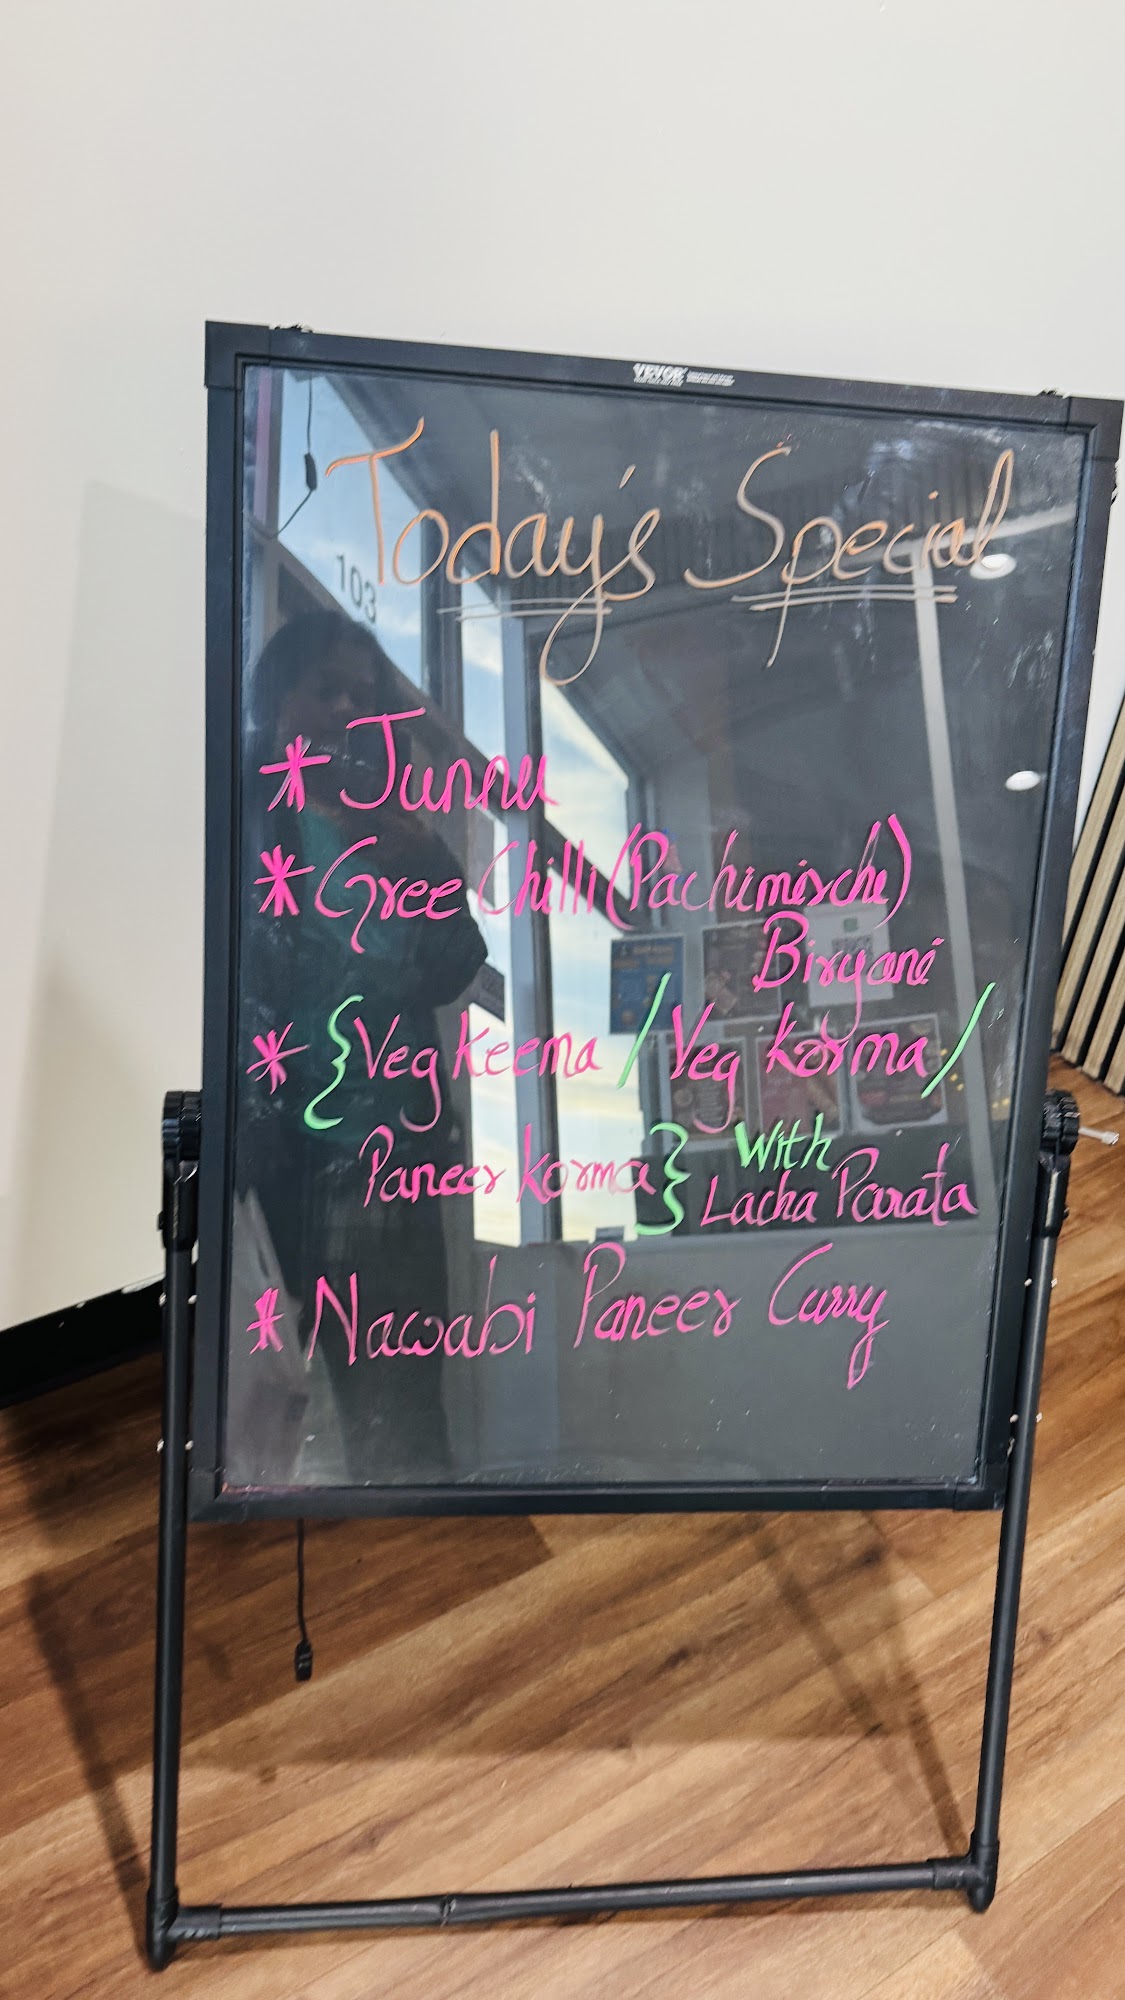 VEVOR
Today's Special
103
* Junnu
* Gree Chilli (Pachimirche)
Biryani
* {Veg Keema / Veg Korma /
Paneer Korma} With
Lacha Parata
* Nawabi Paneer Curry